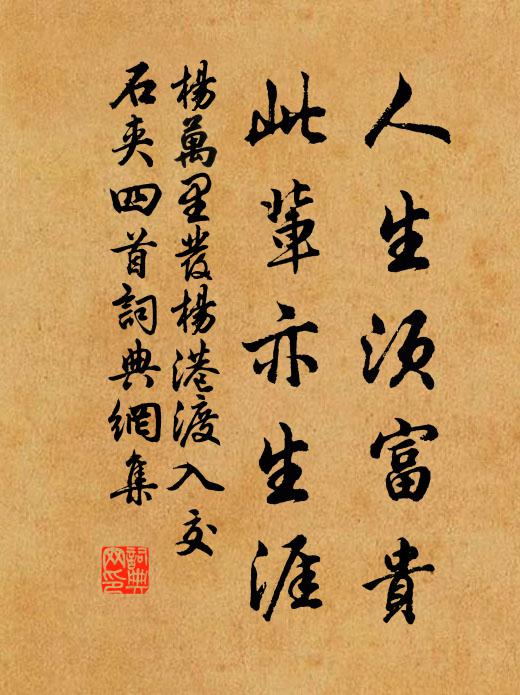 人生須富貴
此輩亦生涯
楊萬里發楊港渡入交
石夾四首詞典網集
詞典網印